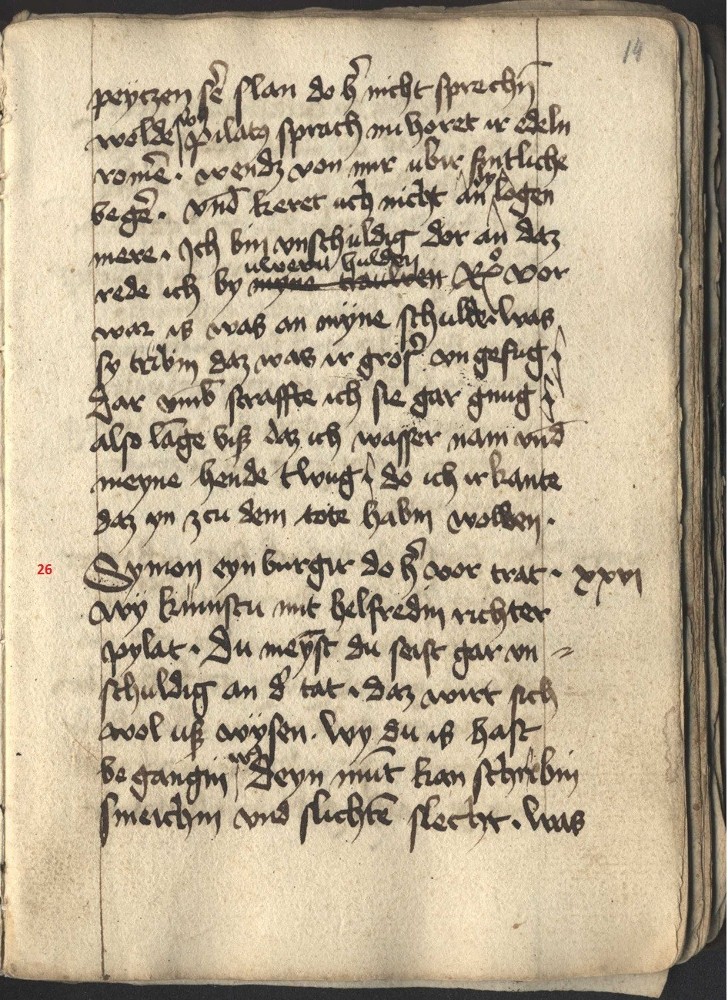 14
peyczen sē slan do h̄ nicht sprechn̄
wolde Pilatꝫ sprach nu horet ir edeln
romē · wendꝫ von mir ubir sintliche
begē · vnd̄ keret uch nicht an logen
mere · Ich bin vnschuldig dor an daz
uweru hulden
rede ich by myne xp̄o vor
war is was an myne schulde · was
sy tribin daz was ir gros̄ vngefug
Dar vmb̄ straffte ich sie gar gnug
also lāge biß daz ich wasser nam vnd̄
meyne hende twug do ich irkante
daz yn zcu dem tote habin wolden ·
26 Symon eyn burgir do h̄ vor trat · xxvi
Wy kumstu mit helfredin richter
pylat · Du meȳst du seist gar vn =
schuldig an d̄ tat · daz wirt sich
wol uß wysen · Wy du is hast
begangin Deyn mūt kan schribin
smeichin vnd slichtē slecht · Was